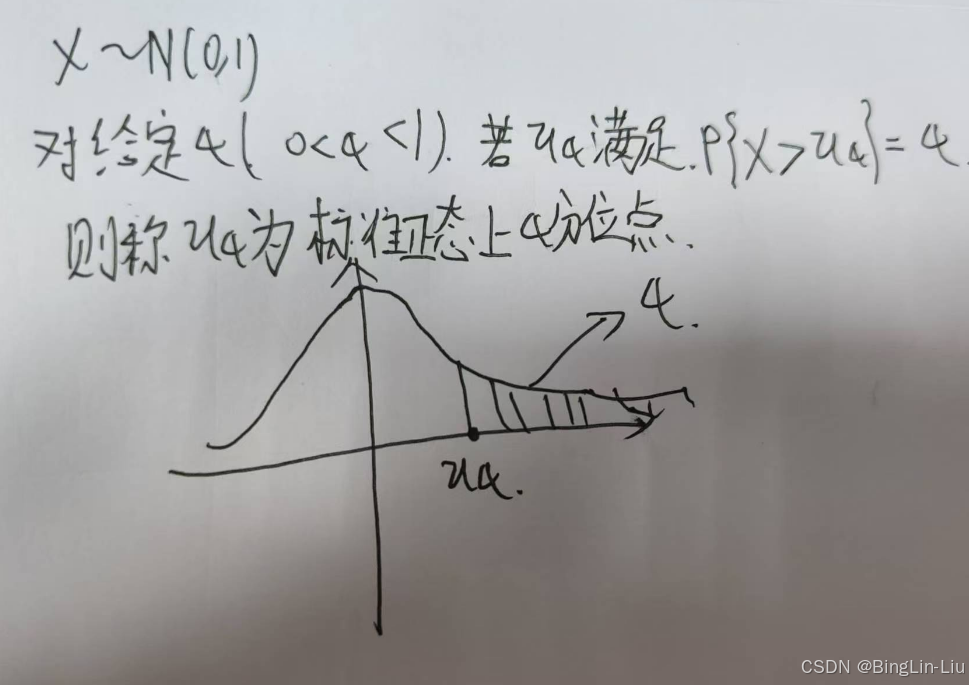 X~N(0,1)
对给定α(0<α<1).若uα满足.P{X>uα}=α.
则称uα为标准正态上α分位点.
α.
uα.
CSDN @BingLin-Liu